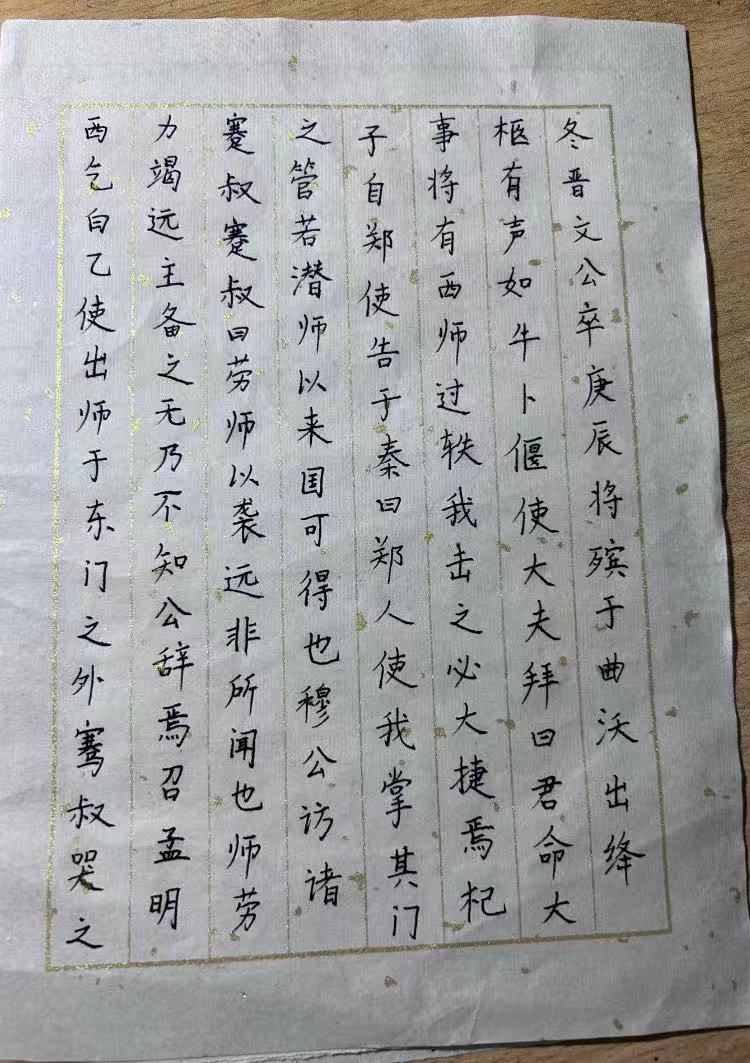 冬晋文公卒庚辰将殡于曲沃出绛
柩有声如牛卜偃使大夫拜曰君命大
事将有西师过轶我击之必大捷焉杞
子自郑使告于秦曰郑人使我掌其门
之管若潜师以来国可得也穆公访诸
蹇叔蹇叔曰劳师以袭远非所闻也师劳
力竭远主备之无乃不知公辞焉召孟明
西乞白乙使出师于东门之外骞叔哭之